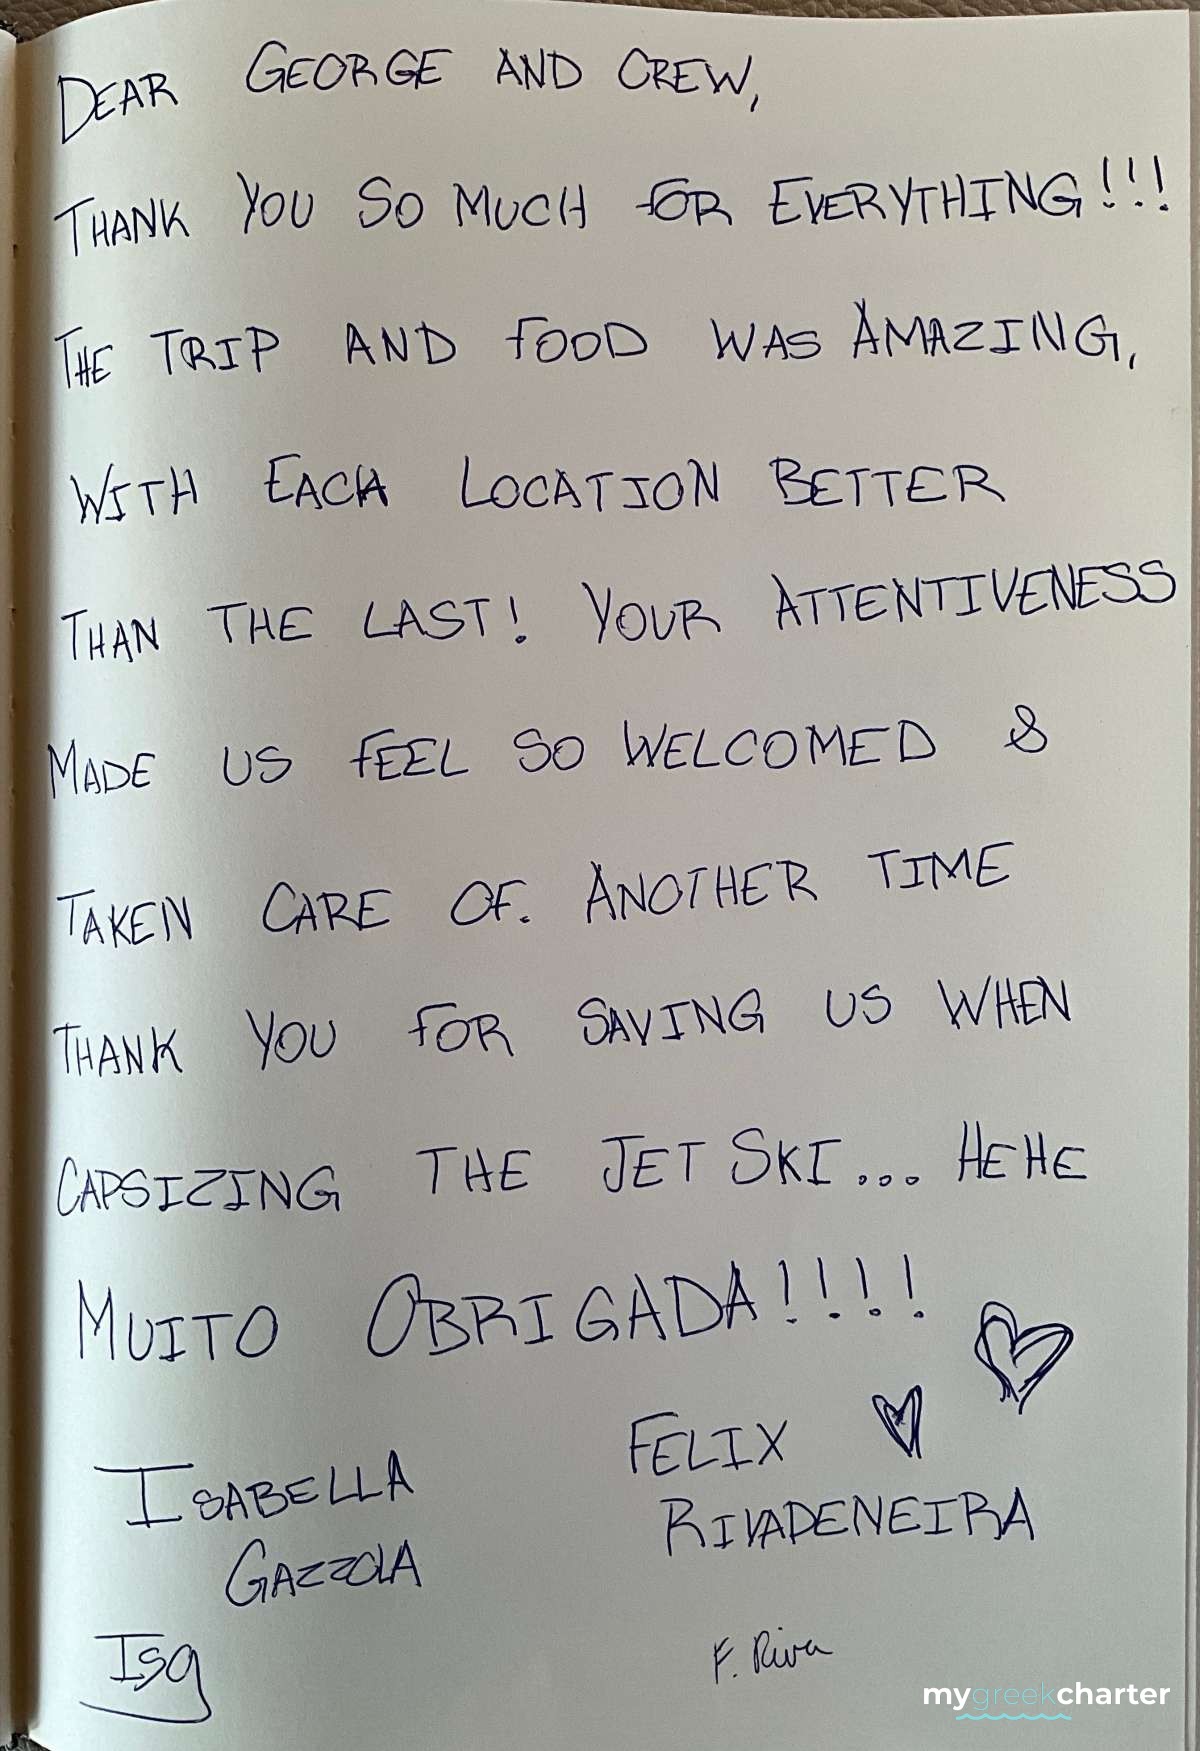 DEAR GEORGE AND CREW,
THANK YOU SO MUCH FOR EVERYTHING!!!
THE TRIP AND FOOD WAS AMAZING,
WITH EACH LOCATION BETTER
THAN THE LAST! YOUR ATTENTIVENESS
MADE US FEEL SO WELCOMED &
TAKEN CARE OF. ANOTHER TIME
THANK YOU FOR SAVING US WHEN
CAPSIZING THE JET SKI... HEHE
MUITO OBRIGADA!!!!
ISABELLA
GAZZOLA
FELIX
RIVADENEIRA
Isg
F. Riva
mygreekcharter